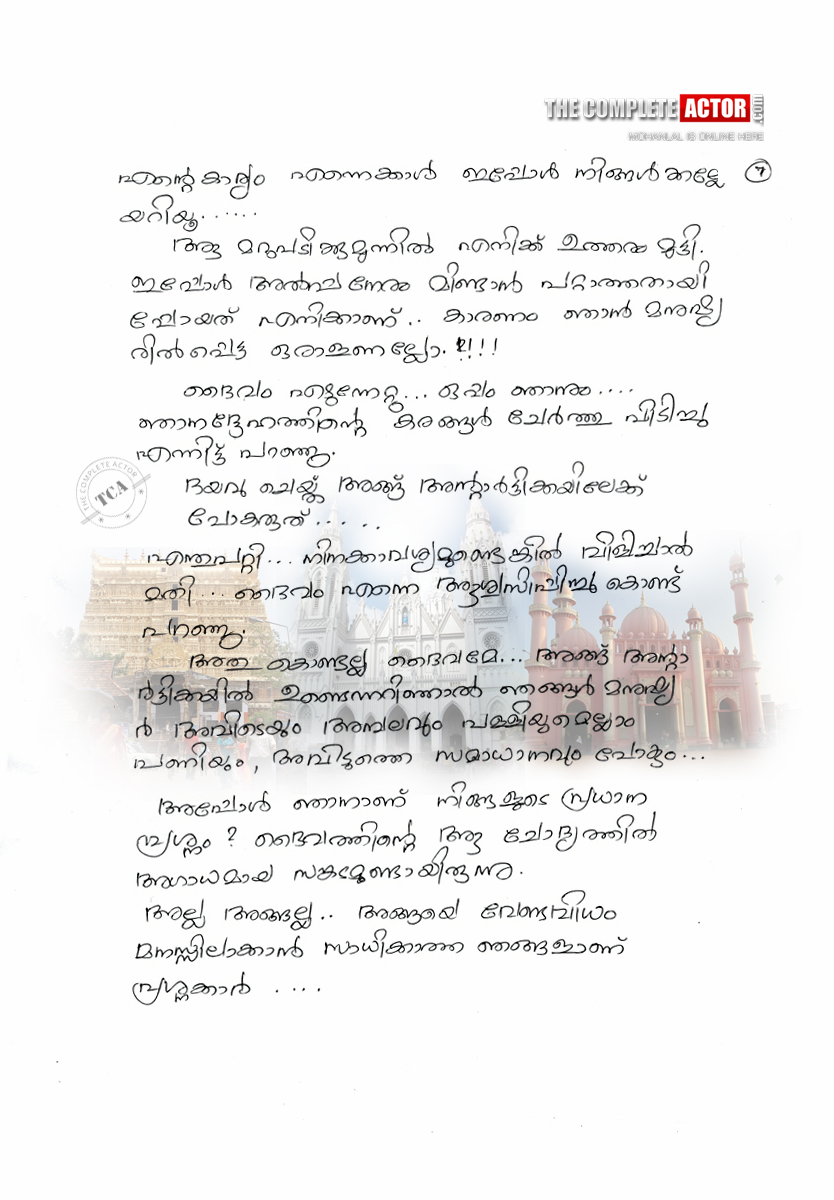 THE COMPLETE ACTOR .COM
MOHANLAL IS ONLINE HERE
എന്റെ കാര്യം എന്നെക്കാൾ ഇപ്പോൾ നിങ്ങൾക്കല്ലേ 7
യറിയൂ......
ആ മറുപടിക്കുമുന്നിൽ എനിക്ക് ഉത്തരം മുട്ടി.
ഇപ്പോൾ അൽപനേരം മിണ്ടാൻ പറ്റാത്തതായി
പ്പോയത് എനിക്കാണ്.. കാരണം ഞാൻ മനുഷ്യ
രിൽപ്പെട്ട ഒരാളാണല്ലോ.!!!!
ദൈവം എഴുന്നേറ്റു... ഒപ്പം ഞാനും....
ഞാനദ്ദേഹത്തിന്റെ കരങ്ങൾ ചേർത്തു പിടിച്ചു
എന്നിട്ട് പറഞ്ഞു.
THE COMPLETE ACTOR
TCA
ദയവു ചെയ്ത് അങ്ങ് അന്റാർട്ടിക്കയിലേക്ക്
പോകരുത്.....
എന്തുപറ്റി... നിനക്കാവശ്യമുണ്ടെങ്കിൽ വിളിച്ചാൽ
മതി... ദൈവം എന്നെ ആശ്വസിപ്പിച്ചു കൊണ്ട്
പറഞ്ഞു.
അതു കൊണ്ടല്ല ദൈവമേ... അങ്ങ് അന്റാ
ർട്ടിക്കയിൽ ഉണ്ടെന്നറിഞ്ഞാൽ ഞങ്ങൾ മനുഷ്യ
ർ അവിടെയും അമ്പലവും പള്ളിയുമെല്ലാം
പണിയും, അവിടുത്തെ സമാധാനവും പോകും...
അപ്പോൾ ഞാനാണ് നിങ്ങളുടെ പ്രധാന
പ്രശ്നം? ദൈവത്തിന്റെ ആ ചോദ്യത്തിൽ
അഗാധമായ സങ്കടമുണ്ടായിരുന്നു.
അല്ല അങ്ങല്ല.. അങ്ങയെ വേണ്ടവിധം
മനസ്സിലാക്കാൻ സാധിക്കാത്ത ഞങ്ങളാണ്
പ്രശ്നക്കാർ ....